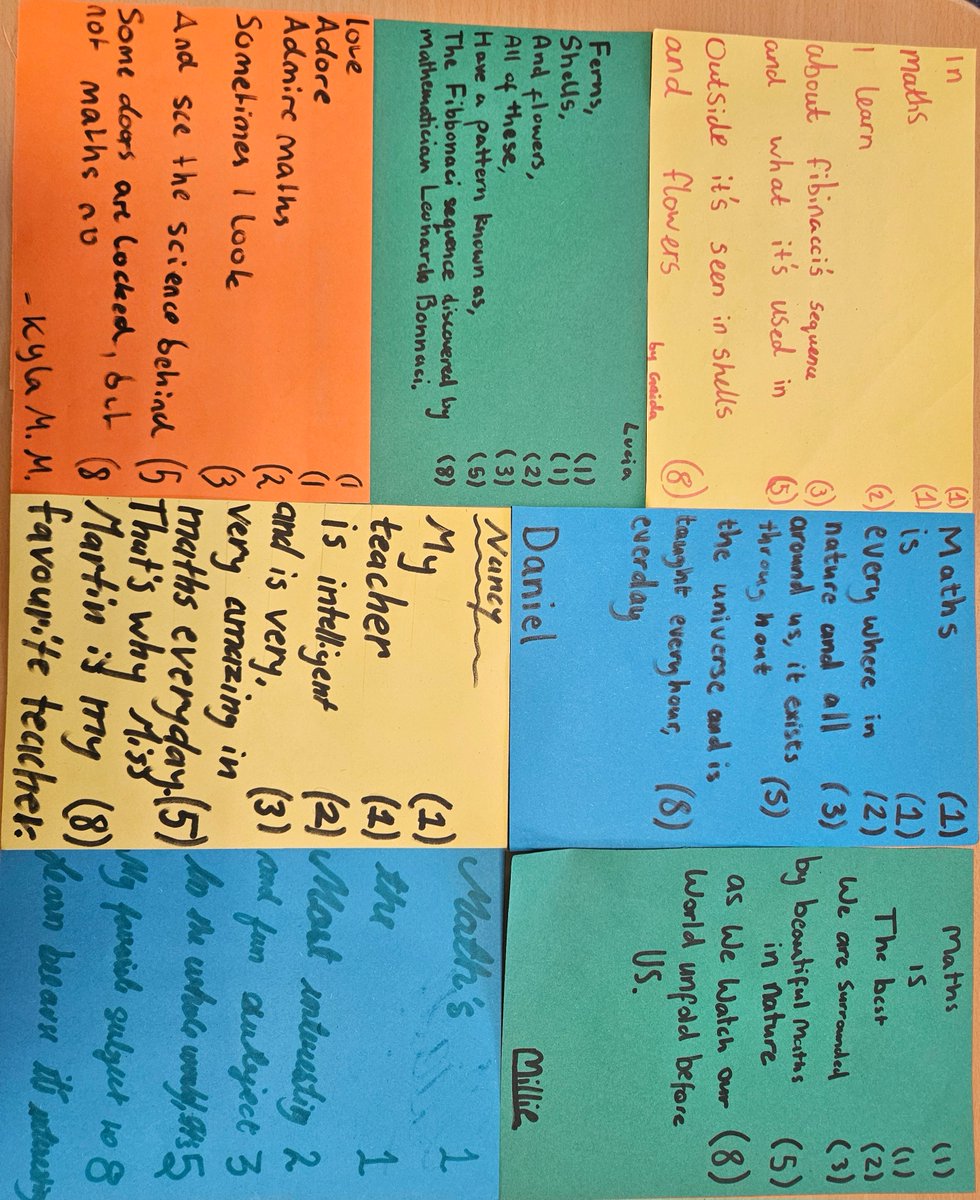 In (1)
Maths (1)
I learn (2)
about fibinacci's sequence (3)
and what it's used in (5)
Outside it's seen in shells
and flowers (8)
by
Lucia
Ferns, (1)
Shells, (1)
And flowers, (2)
All of these, (3)
Have a pattern known as, (5)
The Fibbonaci sequence discovered by
mathematician Leonardo Bonnaci. (8)
love (1
Adore (1
Admire maths (2
Sometimes I look (3
And see the science behind (5
Some doors are locked, but
not maths no (8
- Kyla M. M.
Maths (1)
is (1)
every where in (2)
nature and all (3)
around us, it exists
throug hout (5)
the universe and is
taught every hour, (8)
everday
Daniel
Nancy
My (1)
teacher (1)
is intelligent (2)
and is very, (3)
very amazing in
maths everyday. (5)
That's why Miss
Martin is my (8)
favourite teacher.
Maths (1)
is (1)
The best (2)
We are surrounded (3)
by beautiful Maths
in nature (5)
as We Watch our
World unfold before (8)
Us.
Millie
Math's 1
the 1
Most 2
and fun subject 3
in the whole 5
My subject to 8
learn